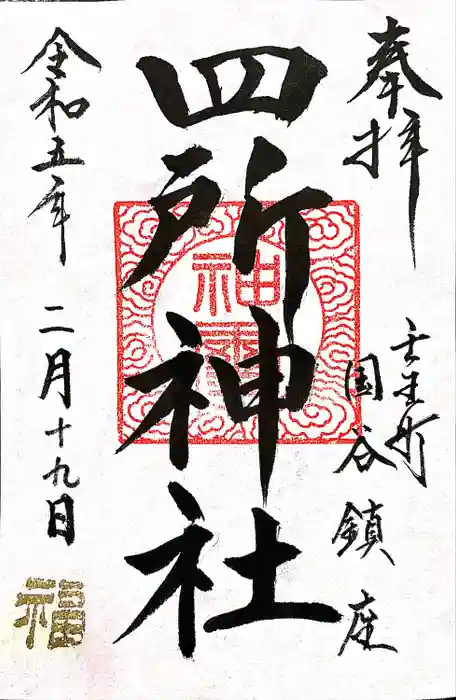 奉拝
壬生町
国谷鎮座
四所神社
神璽
令和五年 二月十九日
福